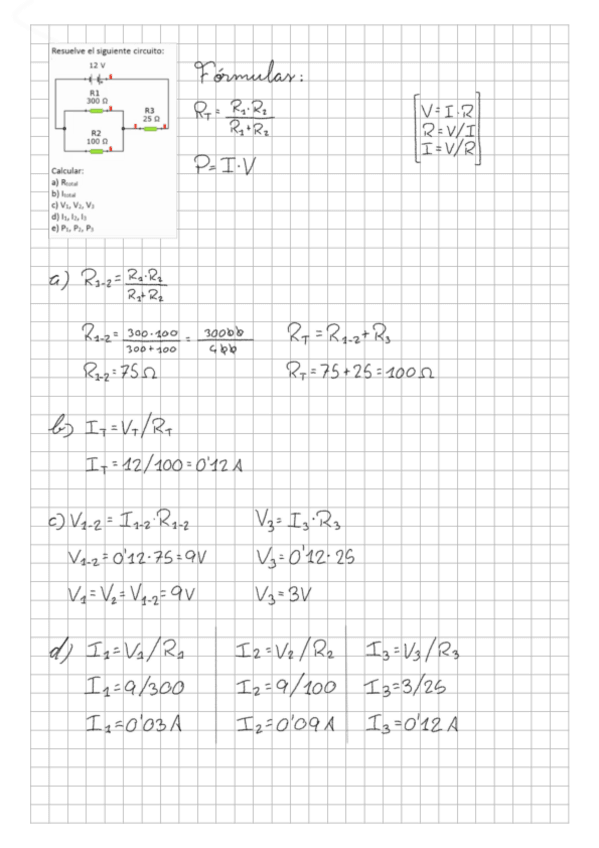 Resuelve el siguiente circuito:
12 V
R1
300 Ω
R3
25 Ω
R2
100 Ω
Calcular:
a) Rtotal
b) Itotal
c) V₁, V₂, V₃
d) I₁, I₂, I₃
e) P₁, P₂, P₃
Fórmulas:
R_T = R₁·R₂ / R₁+R₂
P = I·V
V = I·R
R = V/I
I = V/R
a) R₁₋₂ = R₁·R₂ / R₁+R₂
R₁₋₂ = 300·100 / 300+100 = 30000 / 400
R_T = R₁₋₂ + R₃
R₁₋₂ = 75 Ω
R_T = 75 + 25 = 100 Ω
b) I_T = V_T / R_T
I_T = 12/100 = 0'12 A
c) V₁₋₂ = I₁₋₂·R₁₋₂
V₃ = I₃·R₃
V₁₋₂ = 0'12·75 = 9V
V₃ = 0'12·25
V₁ = V₂ = V₁₋₂ = 9V
V₃ = 3V
d) I₁ = V₁/R₁
I₂ = V₂/R₂
I₃ = V₃/R₃
I₁ = 9/300
I₂ = 9/100
I₃ = 3/25
I₁ = 0'03 A
I₂ = 0'09 A
I₃ = 0'12 A